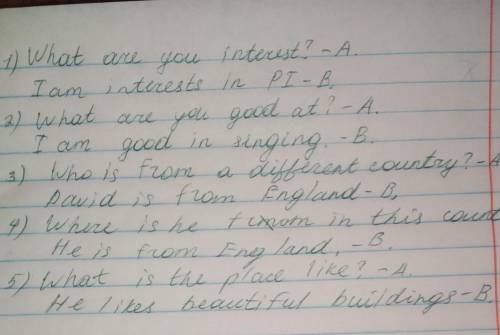 1) What are you interest? - A.
I am interests in PI - B.
2) What are you good at? - A.
I am good in singing. - B.
3) Who is from a different country? - A
David is from England - B.
4) Where is he from in this count
He is from England. - B.
5) What is the place like? - A.
He likes beautiful buildings - B.